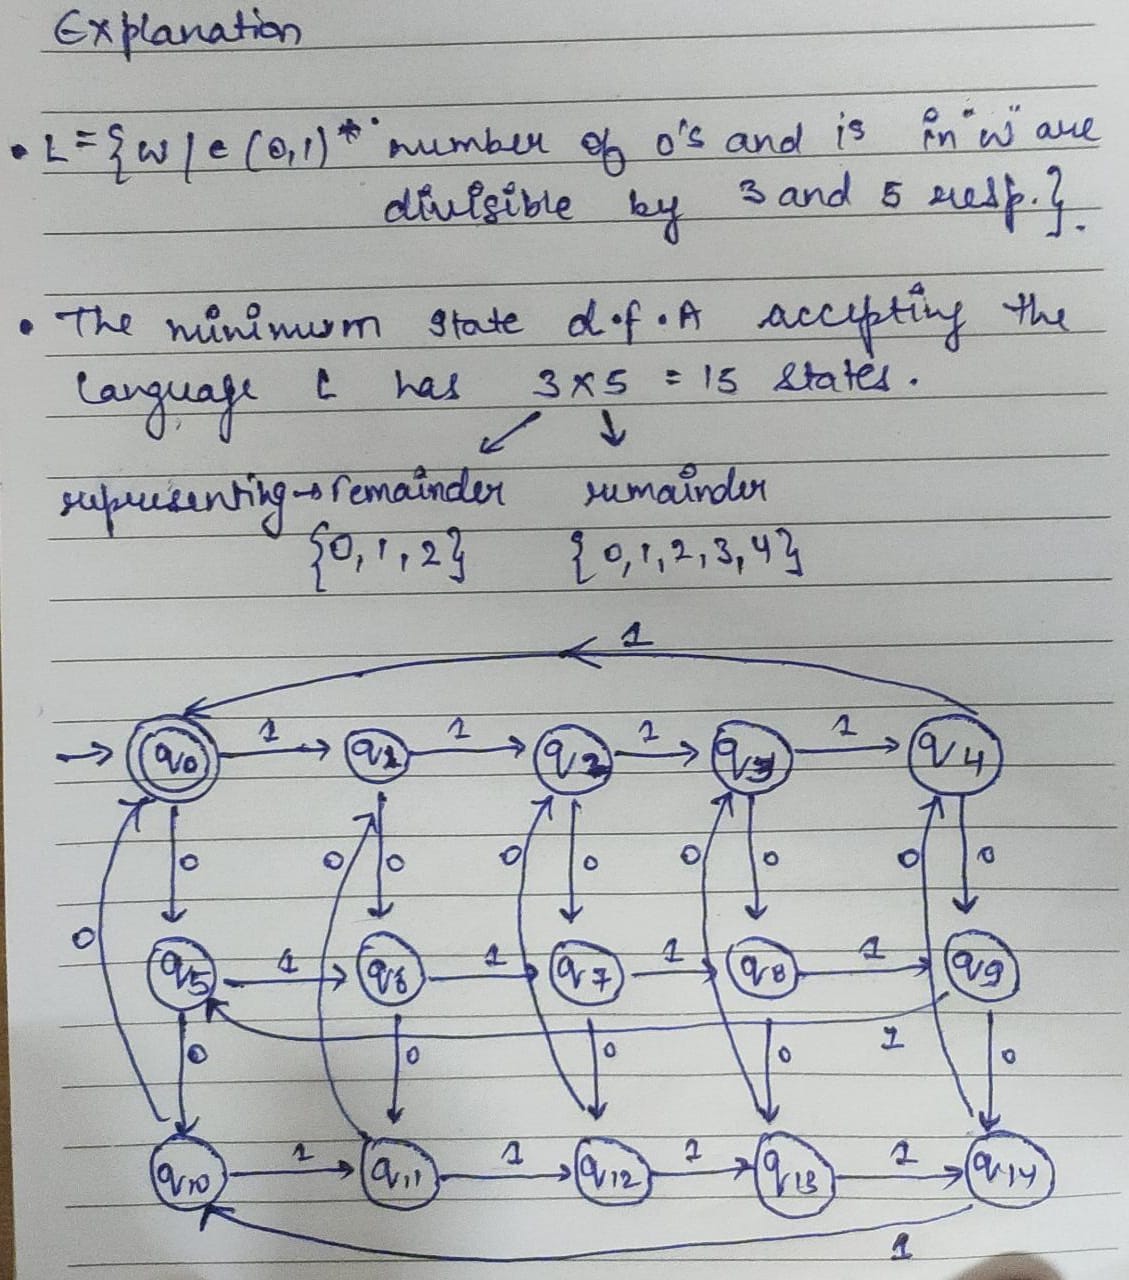 Explanation
• L = {w | ∈ (0,1)* number of 0's and is in "w" are
divisible by 3 and 5 resp.}.
• The minimum state d.f.A accepting the
language L has 3 x 5 = 15 states.
representing → remainder remainder
{0, 1, 2} {0, 1, 2, 3, 4}
1
q0 1 q1 1 q2 1 q3 1 q4
0 0 0 0 0 0 0 0 0
0
q5 1 q6 1 q7 1 q8 1 q9
1
0 0 0 0 0
q10 1 q11 1 q12 1 q13 1 q14
1